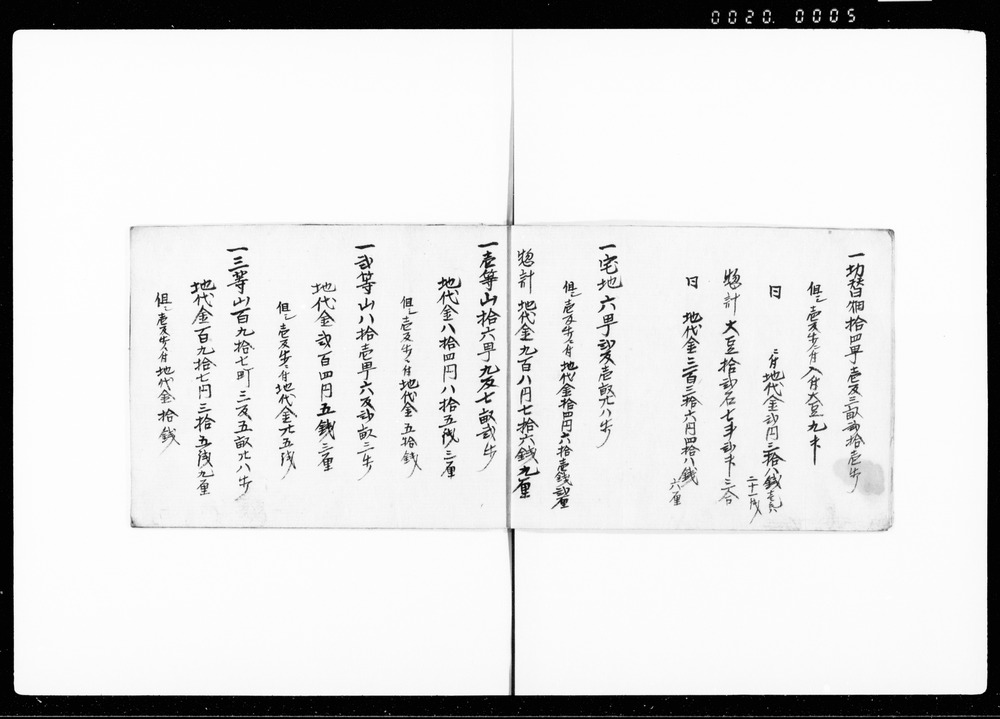 0020. 0005
一切替畑拾四町壱反三畝弐拾壱歩
但シ壱反歩ニ付入付大豆九斗
同 ニ付地代金弐円三拾八銭
惣計 大豆拾弐石七斗弐升三合
同 地代金三百三拾六円四拾八銭
六厘
一宅地 六町弐反壱畝廿八歩
但シ壱反歩ニ付地代金拾四円六拾壱銭弐厘
惣計 地代金九百八円七拾六銭九厘
一壱等山拾六町九反七畝弐歩
地代金八拾四円八拾五銭三厘
但シ壱反歩ニ付地代金五拾銭
一弐等山八拾壱町六反弐畝三歩
地代金弐百四円五銭三厘
但シ壱反歩ニ付地代金廿五銭
一三等山百九拾七町三反五畝廿八歩
地代金百九拾七円三拾五銭九厘
但シ壱反歩ニ付地代金拾銭